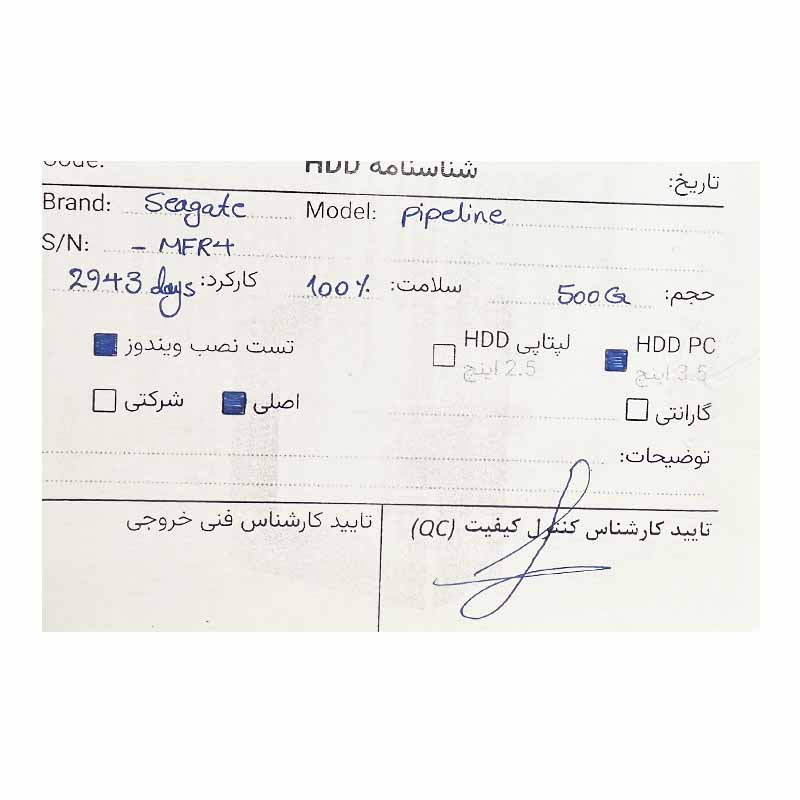 Code: شناسنامه HDD تاریخ:
Brand: Seagate Model: Pipeline
S/N: - MFR4
حجم: 500G سلامت: 100% کارکرد: 2943 days
HDD PC HDD لپتاپی تست نصب ویندوز
3.5 اینچ 2.5 اینچ
گارانتی اصلی شرکتی
توضیحات:
تایید کارشناس کنترل کیفیت (QC) تایید کارشناس فنی خروجی